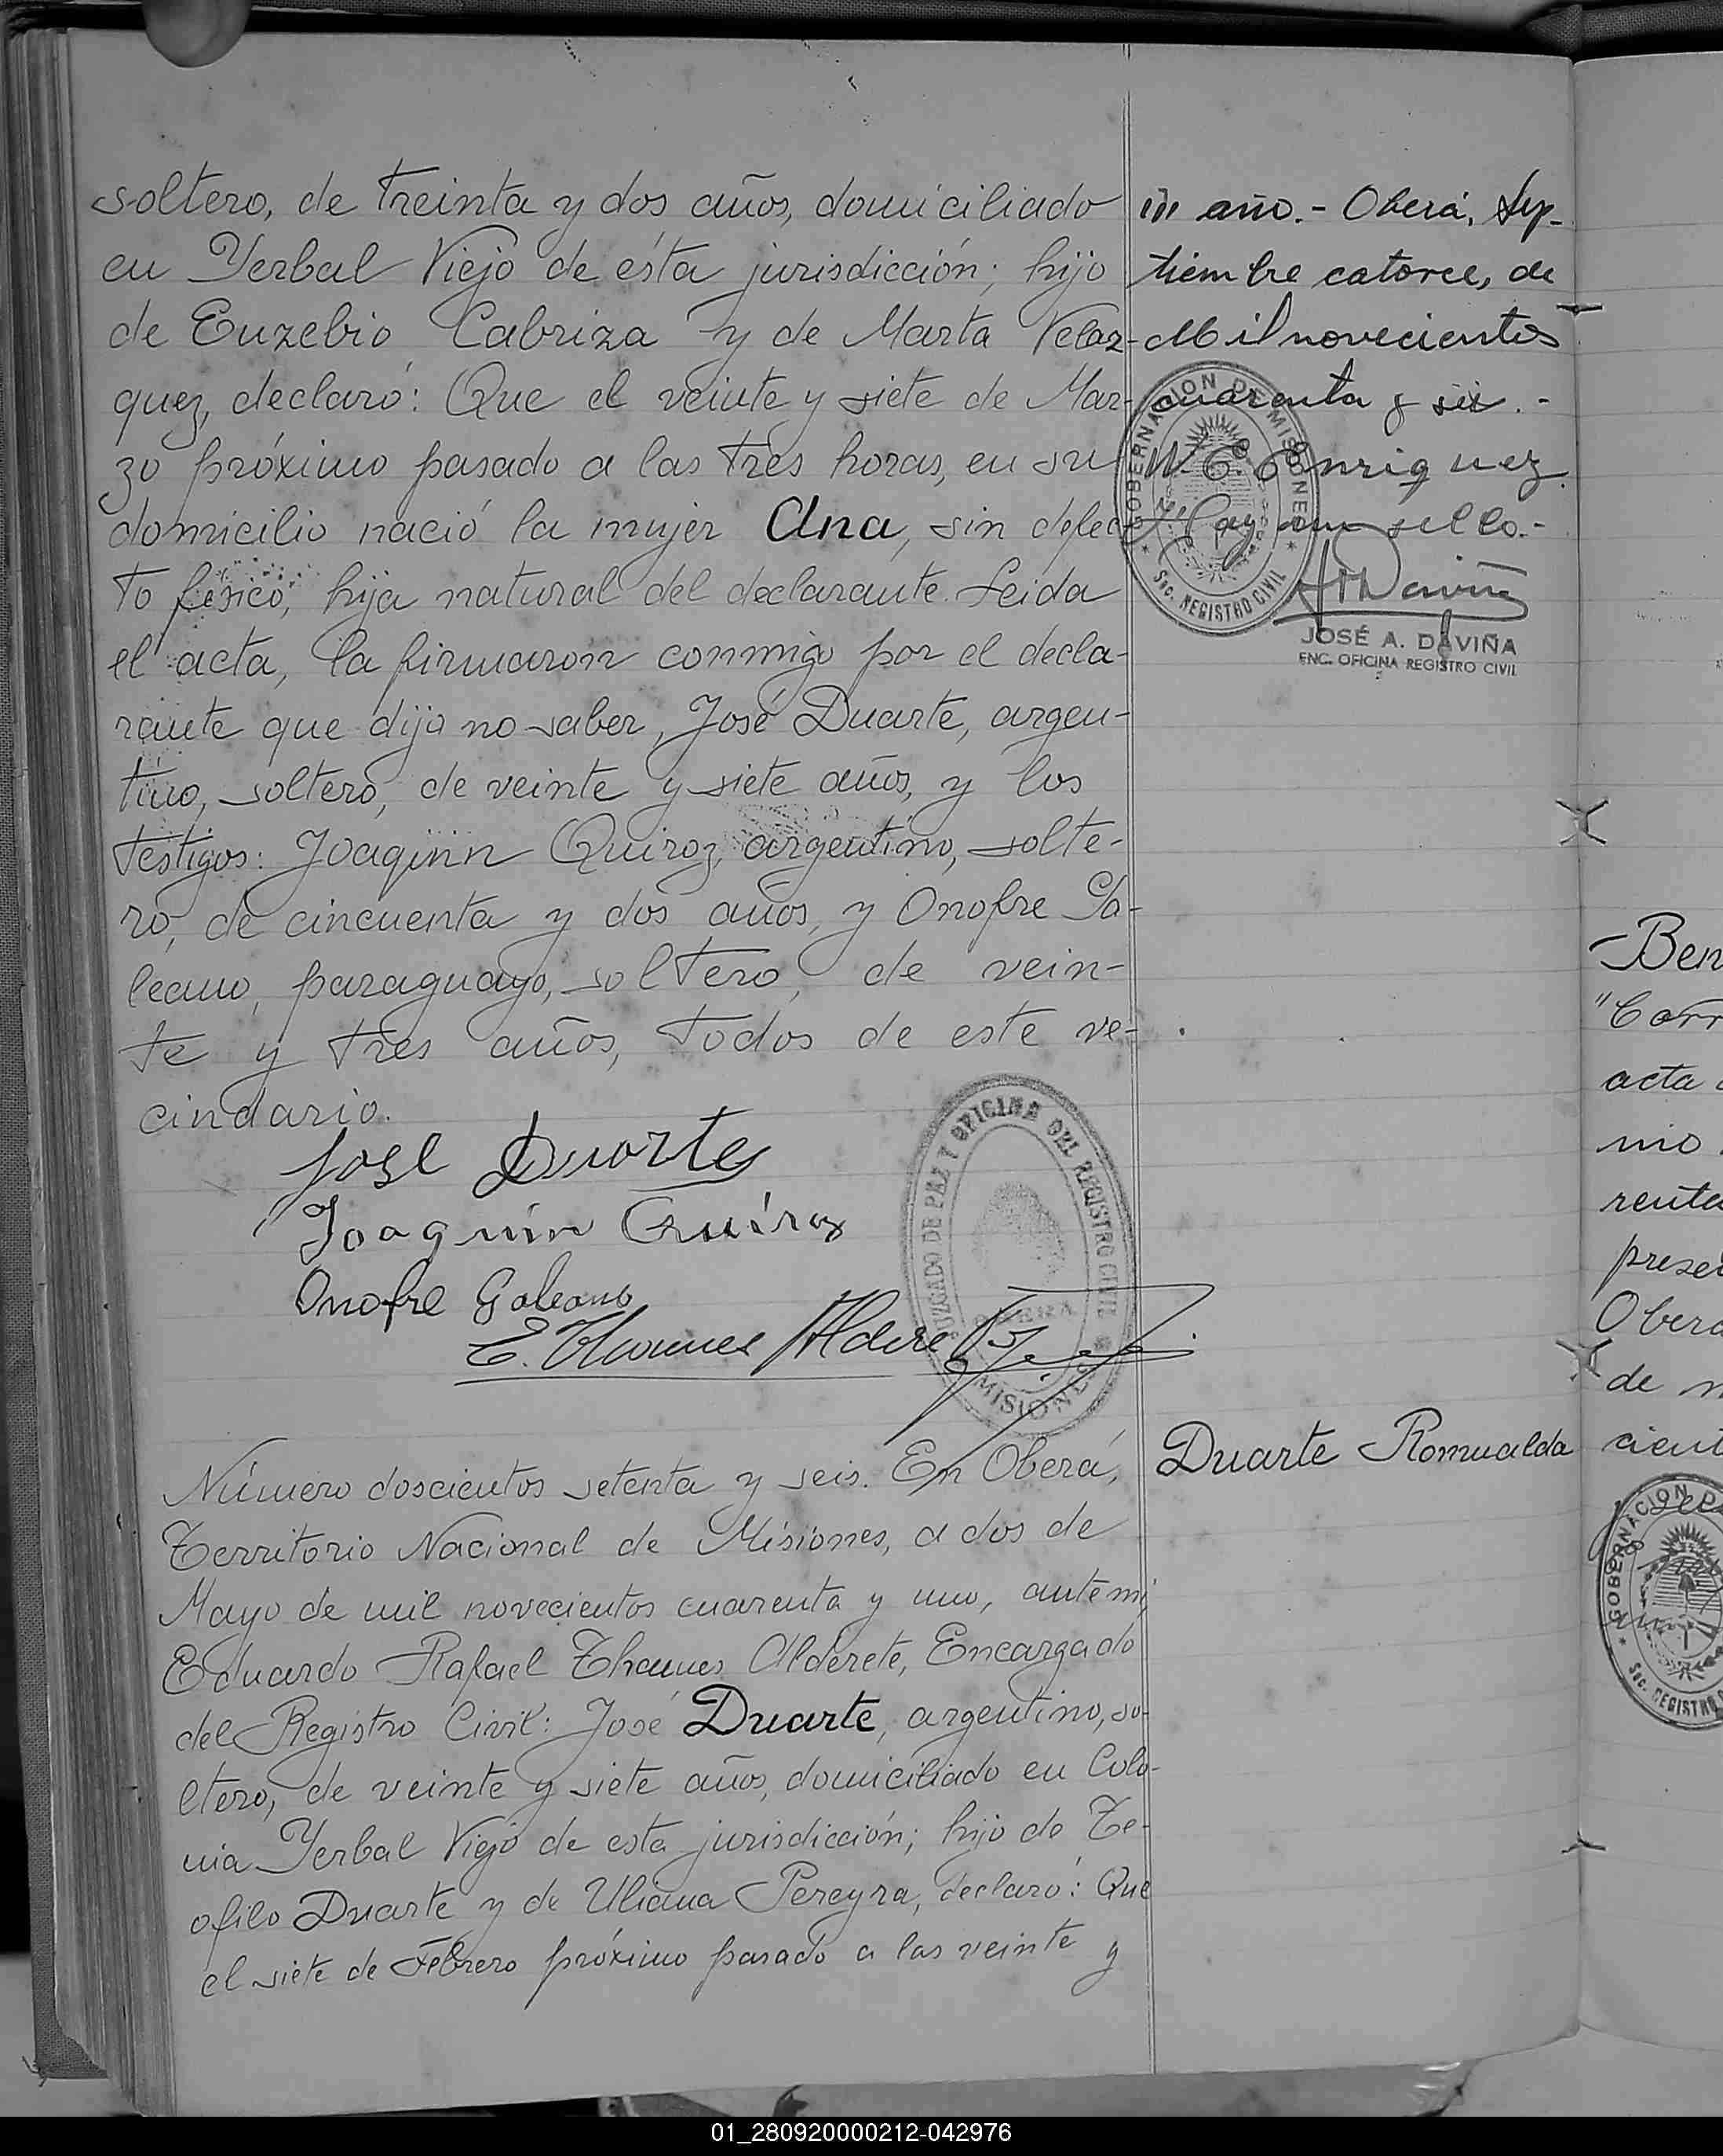 soltero, de treinta y dos años, domiciliado
en Yerbal Viejo de ésta jurisdicción; hijo
de Euzebio Cabriza y de Marta Velaz-
quez, declaró: Que el veinte y siete de Mar-
zo próximo pasado a las tres horas, en su
domicilio nació la mujer Ana, sin defec-
to físico, hija natural del declarante. Leida
el acta, la firmaron conmigo por el decla-
rante que dijo no saber, José Duarte, argen-
tino, soltero, de veinte y siete años, y los
testigos: Joaquin Quiroz, argentino, solte-
ro, de cincuenta y dos años, y Onofre Ga-
leano, paraguayo, soltero, de vein-
te y tres años, todos de este ve-
cindario.
José Duarte
Joaquín Quiroz
Onofre Galeano
E. Thames Alderete
JUZGADO DE PAZ Y OFICINA DEL REGISTRO CIVIL
OBERA
MISIONES
año.- Oberá, Sep-
tiembre catorce, de
Mil novecientos
cuarenta y seis.-
Enriquez
Hay un sello.-
GOBERNACION DE MISIONES
Sec. REGISTRO CIVIL
JOSÉ A. DAVIÑA
ENC. OFICINA REGISTRO CIVIL
Número doscientos setenta y seis. En Oberá,
Territorio Nacional de Misiones, a dos de
Mayo de mil novecientos cuarenta y uno, ante mi,
Eduardo Rafael Thames Alderete, Encargado
del Registro Civil: José Duarte, argentino, so-
ltero, de veinte y siete años, domiciliado en Colo-
nia Yerbal Viejo de esta jurisdicción; hijo de Te-
ofilo Duarte y de Uliana Pereyra, declaró: Que
el siete de Febrero próximo pasado a las veinte y
Duarte Romualda
-Ben
"Corr
acta
mo
renta
presen
Obera
de m
cient
GOBERNACION D
Sec. REGISTRO
01_280920000212-042976